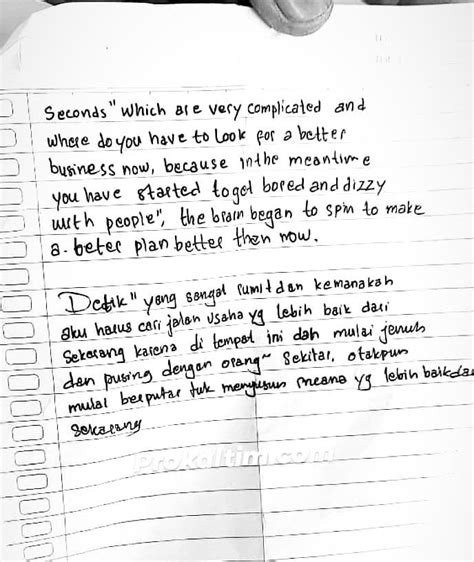 Seconds" Which are very complicated and
where do you have to look for a better
business now, because inthe meantime
you have started toget bored and dizzy
with people", the brain began to spin to make
a. beter plan better then now.
Detik" yang sangat rumit dan kemanakah
aku harus cari jalan usaha yg lebih baik dari
Sekarang karena di tempat ini dah mulai jenuh
dan pusing dengan orang~ Sekitar, otakpun
mulai berputar tuk menyusun rencana yg lebih baik da
Sekarang
Prokaltim.com